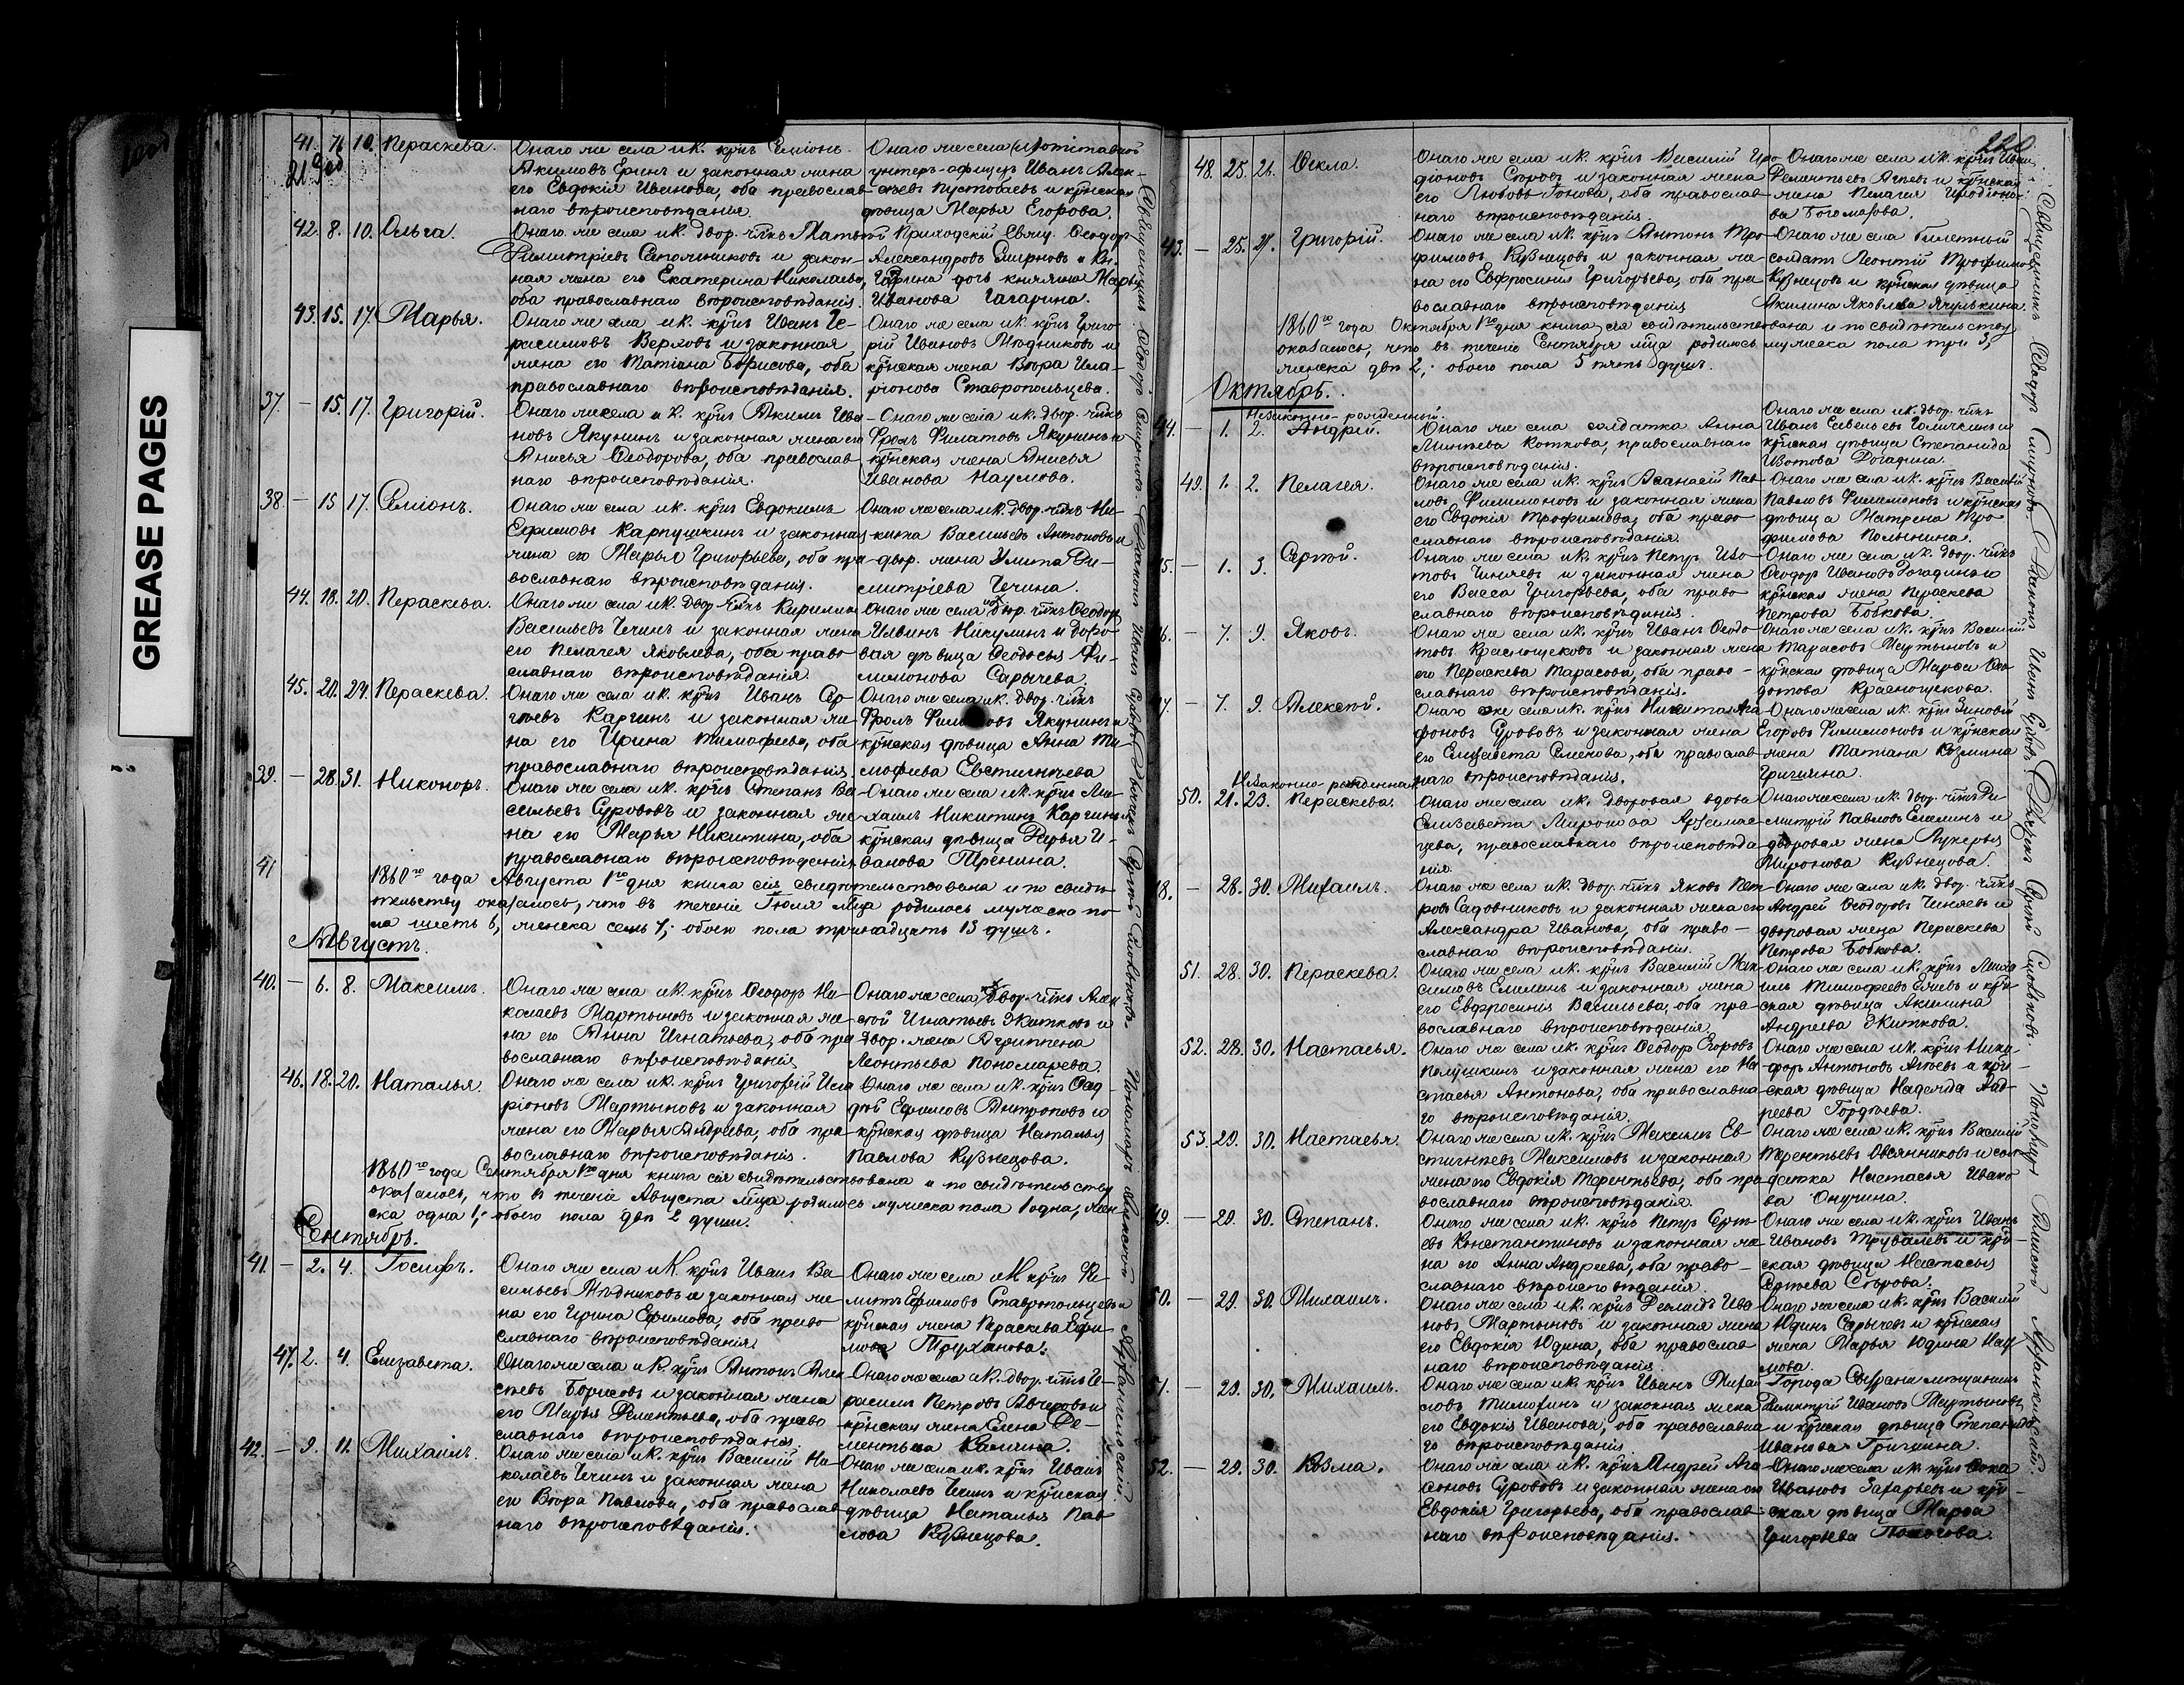 GREASE PAGES
41. 7. 10. Пераскева.
Онаго же села и К. крнъ Семіонъ
Акимовъ Еринъ и законная жена
его Евдокія Иванова, оба православ-
наго вѣроисповѣданія.
Онаго же села
унтеръ-офицеръ Иванъ Алек-
сѣевъ Пустобаевъ и крнская
дѣвица Марья Егорова.
42. 8. 10. Ольга.
Онаго же села и К. двор. члкъ Матвѣй
Димитріевъ Сапожниковъ и закон-
ная жена его Екатерина Николаева,
оба православнаго вѣроисповѣданія.
Приходскій Свящ. Ѳеодоръ
Александровъ Смирновъ и Кн.
Гагарина дочь княжна Марья
Иванова Гагарина.
43. 15. 17. Марья.
Онаго же села и К. крнъ Иванъ Ге-
расимовъ Верховъ и законная
жена его Татіана Борисова, оба
православнаго вѣроисповѣданія.
Онаго же села и К. крнъ Григо-
рій Ивановъ Мѣдниковъ и
крнская жена Вѣра Ила-
ріонова Ставропольцева.
37. — 15. 17. Григорій.
Онаго же села и К. крнъ Акимъ Ива-
новъ Якунинъ и законная жена его
Анисья Ѳеодорова, оба православ-
наго вѣроисповѣданія.
Онаго же села и К. двор. члкъ
Фролъ Филатовъ Якунинъ и
крнская жена Анисья
Иванова Наумова.
38. — 15 17. Семіонъ.
Онаго же села и К. крнъ Евдокимъ
Ефимовъ Карпушкинъ и законная
жена его Марья Григорьева, оба пра-
вославнаго вѣроисповѣданія.
Онаго же села и К. двор. члкъ Ни-
кита Васильевъ Антоновъ и
двор. жена Улита Ди-
митріева Чечина.
44. 18. 20. Пераскева.
Онаго же села и К. двор. члкъ Кирилла
Васильевъ Чечинъ и законная жена
его Пелагея Яковлева, оба право-
славнаго вѣроисповѣданія.
Онаго же села двор. члкъ Ѳеодоръ
Ильинъ Никулинъ и дворо-
вая дѣвица Ѳеодосья Фи-
лимонова Сарычева.
45. 20. 24. Пераскева.
Онаго же села и К. крнъ Иванъ Сер-
гѣевъ Каргинъ и законная же-
на его Ирина Тимофеева, оба
православнаго вѣроисповѣданія.
Онаго же села и К. двор. члкъ
Фролъ Филатовъ Якунинъ и
крнская дѣвица Анна Ти-
мофеева Евстигнѣева
39. — 28. 31. Никоноръ.
Онаго же села и К. крнъ Степанъ Ва-
сильевъ Сурововъ и законная же-
на его Марья Никитина, оба
православнаго вѣроисповѣданія.
Онаго же села и К. крнъ Ми-
хаилъ Никитинъ Каргинъ и
крнская дѣвица Дарья И-
ванова Тренина.
41
1860го года Августа 1го дня книга сія свидѣтельствована и по свидѣ-
тельству оказалось, что въ теченіе Іюля мца родилось мужеска по-
ла шесть 6, женска семь 7, обоего пола тринадцать 13 душъ.
Августъ.
40. — 6. 8. Максимъ.
Онаго же села и К. крнъ Ѳеодоръ Ни-
колаевъ Мартыновъ и законная же-
на его Анна Игнатьева, оба пра-
вославнаго вѣроисповѣданія
Онаго же села двор. члкъ Алек-
сѣй Игнатьевъ Житковъ и
двор. жена Агриппена
Леонтьева Пономарева.
46. 18. 20. Наталья.
Онаго же села и К. крнъ Григорій Ила-
ріоновъ Мартыновъ и законная
жена его Марья Андреева, оба пра-
вославнаго вѣроисповѣданія.
Онаго же села и К. крнъ Ѳад-
дѣй Ефимовъ Антроповъ и
крнская дѣвица Наталья
Павлова Кузнецова.
1860го года Сентября 1го дня книга сія свидѣтельствована и по свидѣтельству
оказалось, что въ теченіе Августа мца родилось мужеска пола 1 одна, жен-
ска одна 1, обоего пола двѣ 2 души.
Сентябрь.
41. — 2. 4. Іосифъ.
Онаго же села и К. крнъ Иванъ Ва-
сильевъ Мѣдниковъ и законная же-
на его Ирина Ефимова, оба право-
славнаго вѣроисповѣданія
Онаго же села и К крнъ Фи-
липъ Ефимовъ Ставропольцевъ и
крнская жена Пераскева Ефи-
мова Труханова.
47. 2. 4. Елизавета.
Онаго же села и К. крнъ Антонъ Алек-
сѣевъ Борисовъ и законная жена
его Марья Дементьева, оба право-
славнаго вѣроисповѣданія.
Онаго же села и К. двор. члкъ Ге-
расимъ Петровъ Овчеровъ и
крнская жена Елена Де-
ментьева Калинина.
42. — 9. 11. Михаилъ.
Онаго же села и К. крнъ Василій Ни-
колаевъ Чечинъ и законная жена
его Вѣра Павлова, оба православ-
наго вѣроисповѣданія.
Онаго же села и К. крнъ Иванъ
Николаевъ Чечинъ и крнская
дѣвица Наталья Пав-
лова Кузнецова.
Священникъ Ѳеодоръ Смирновъ. Діаконъ Иванъ Дьячекъ Сергѣй Пономарь Алексѣй
220
48. 25. 26. Ѳекла.
Онаго же села и К. крнъ Василій Иро-
діоновъ Сѣровъ и законная жена
его Любовь Іонова, оба православ-
наго вѣроисповѣданія.
Онаго же села и К. крнъ Иванъ
Дементьевъ Агѣевъ и крнская
жена Пелагея Иродіоно-
ва Богомазова.
43. — 25. 27. Григорій.
Онаго же села и К. крнъ Антонъ Тро-
фимовъ Кузнецовъ и законная же-
на его Евфросинія Григорьева, оба пра-
вославнаго вѣроисповѣданія
Онаго же села билетный
солдатъ Леонтій Трофимовъ
Кузнецовъ и крнская дѣвица
Акилина Яковлева Якулькина.
1860го года Октября 1го дня книга сія свидѣтельствована и по свидѣтельству
оказалось, что въ теченіе Сентября мца родилось мужеска пола три 3,
женска двѣ 2, обоего пола 5 пять душъ.
Октябрь.
Незаконно-рожденный.
44. — 1. 2. Андрей.
Онаго же села солдатка Анна
Минѣева Коткова, православнаго
вѣроисповѣданія.
Онаго же села и К. двор. члкъ
Иванъ Савельевъ Галичкинъ и
крнская дѣвица Степанида
Изотова Рогадина.
49. 1. 2. Пелагея.
Онаго же села и К. крнъ Аѳанасій Пав-
ловъ Филимоновъ и законная жена
его Евдокія Трофимова, оба право-
славнаго вѣроисповѣданія.
Онаго же села и К. крнъ Василій
Павловъ Филимоновъ и крнская
дѣвица Матрена Тро-
фимова Полынина.
45. — 1. 3. Сергѣй.
Онаго же села и К. крнъ Петръ Изо-
товъ Чиняевъ и законная жена
его Васса Григорьева, оба право-
славнаго вѣроисповѣданія.
Онаго же села и К. двор. члкъ
Ѳеодоръ Ивановъ Рогадинъ и
крнская жена Пераскева
Петрова Бобкова.
46. — 7. 9. Яковъ.
Онаго же села и К. крнъ Иванъ Ѳедо-
товъ Краснощековъ и законная жена
его Пераскева Тарасова, оба право-
славнаго вѣроисповѣданія.
Онаго же села и К. крнъ Василій
Тарасовъ Мартыновъ и
крнская дѣвица Марѳа Ѳе-
дотова Краснощекова.
47. — 7. 9. Алексѣй.
Онаго же села и К. крнъ Никита Ага-
фоновъ Сурововъ и законная жена
его Елизавета Семенова, оба православ-
наго вѣроисповѣданія.
Онаго же села и К. крнъ Зиновій
Егоровъ Филимоновъ и крнская
жена Татіана Козмина
Гришина.
Незаконно-рожденная.
50. 21. 23. Пераскева.
Онаго же села и К. дворовая вдова
Елизавета Миронова Арзамас-
цева, православнаго вѣроисповѣда-
нія.
Онаго же села и К. двор. члкъ Ди-
митрій Павловъ Емелинъ и
дворовая жена Лукерья
Миронова Кузнецова.
48. — 28. 30. Михаилъ.
Онаго же села и К. двор. члкъ Яковъ Пет-
ровъ Садовниковъ и законная жена его
Александра Иванова, оба право-
славнаго вѣроисповѣданія.
Онаго же села и К. двор. члкъ
Андрей Ѳеодоровъ Чиняевъ и
дворовая жена Пераскева
Петрова Бобкова.
51. 28. 30. Пераскева.
Онаго же села и К. крнъ Василій Мак-
симовъ Емелинъ и законная жена
его Евфросинія Васильева, оба пра-
вославнаго вѣроисповѣданія.
Онаго же села и К. крнъ Миха-
илъ Тимофеевъ Елаевъ и крн-
ская дѣвица Акилина
Андреева Житкова.
52. 28. 30. Настасья.
Онаго же села и К. крнъ Ѳеодоръ Егоровъ
Полушкинъ и законная жена его На-
стасья Антонова, оба православна-
го вѣроисповѣданія.
Онаго же села и К. крнъ Ники-
форъ Антоновъ Агѣевъ и крн-
ская дѣвица Надежда Анд-
реева Гордѣева.
53. 29. 30. Настасья.
Онаго же села и К. крнъ Максимъ Ев-
стигнѣевъ Максимовъ и законная
жена его Евдокія Терентьева, оба пра-
вославнаго вѣроисповѣданія.
Онаго же села и К. крнъ Василій
Терентьевъ Овсянниковъ и сол-
датка Настасья Ивано-
ва Онучина.
49. — 29. 30. Степанъ.
Онаго же села и К. крнъ Петръ Сергѣ-
евъ Константиновъ и законная же-
на его Анна Андреева, оба право-
славнаго вѣроисповѣданія.
Онаго же села и К. крнъ Иванъ
Ивановъ Трувалевъ и крн-
ская дѣвица Настасья
Сергѣева Сѣрова.
50. — 29. 30. Михаилъ.
Онаго же села и К. крнъ Демидъ Ива-
новъ Мартыновъ и законная жена
его Евдокія Юдина, оба православ-
наго вѣроисповѣданія.
Онаго же села и К. крнъ Василій
Юдинъ Сарычевъ и крнская
жена Марья Юдина Нау-
мова.
51. — 29. 30. Михаилъ.
Онаго же села и К. крнъ Иванъ Михай-
ловъ Тимофинъ и законная жена
его Евдокія Иванова, оба православна-
го вѣроисповѣданія
Города Сызрани мѣщанинъ
Димитрій Ивановъ Мартыновъ
и крнская дѣвица Степанида
Иванова Гришина.
52. — 29. 30. Козма.
Онаго же села и К. крнъ Андрей Ага-
ѳоновъ Сурововъ и законная жена его
Евдокія Григорьева, оба православ-
наго вѣроисповѣданія.
Онаго же села и К. крнъ Ѳока
Ивановъ Захарьевъ и крн-
ская дѣвица Марѳа
Григорьева Пологова.
Священникъ Ѳеодоръ Смирновъ. Діаконъ Иванъ Дьячекъ Сергѣй Пономарь Алексѣй